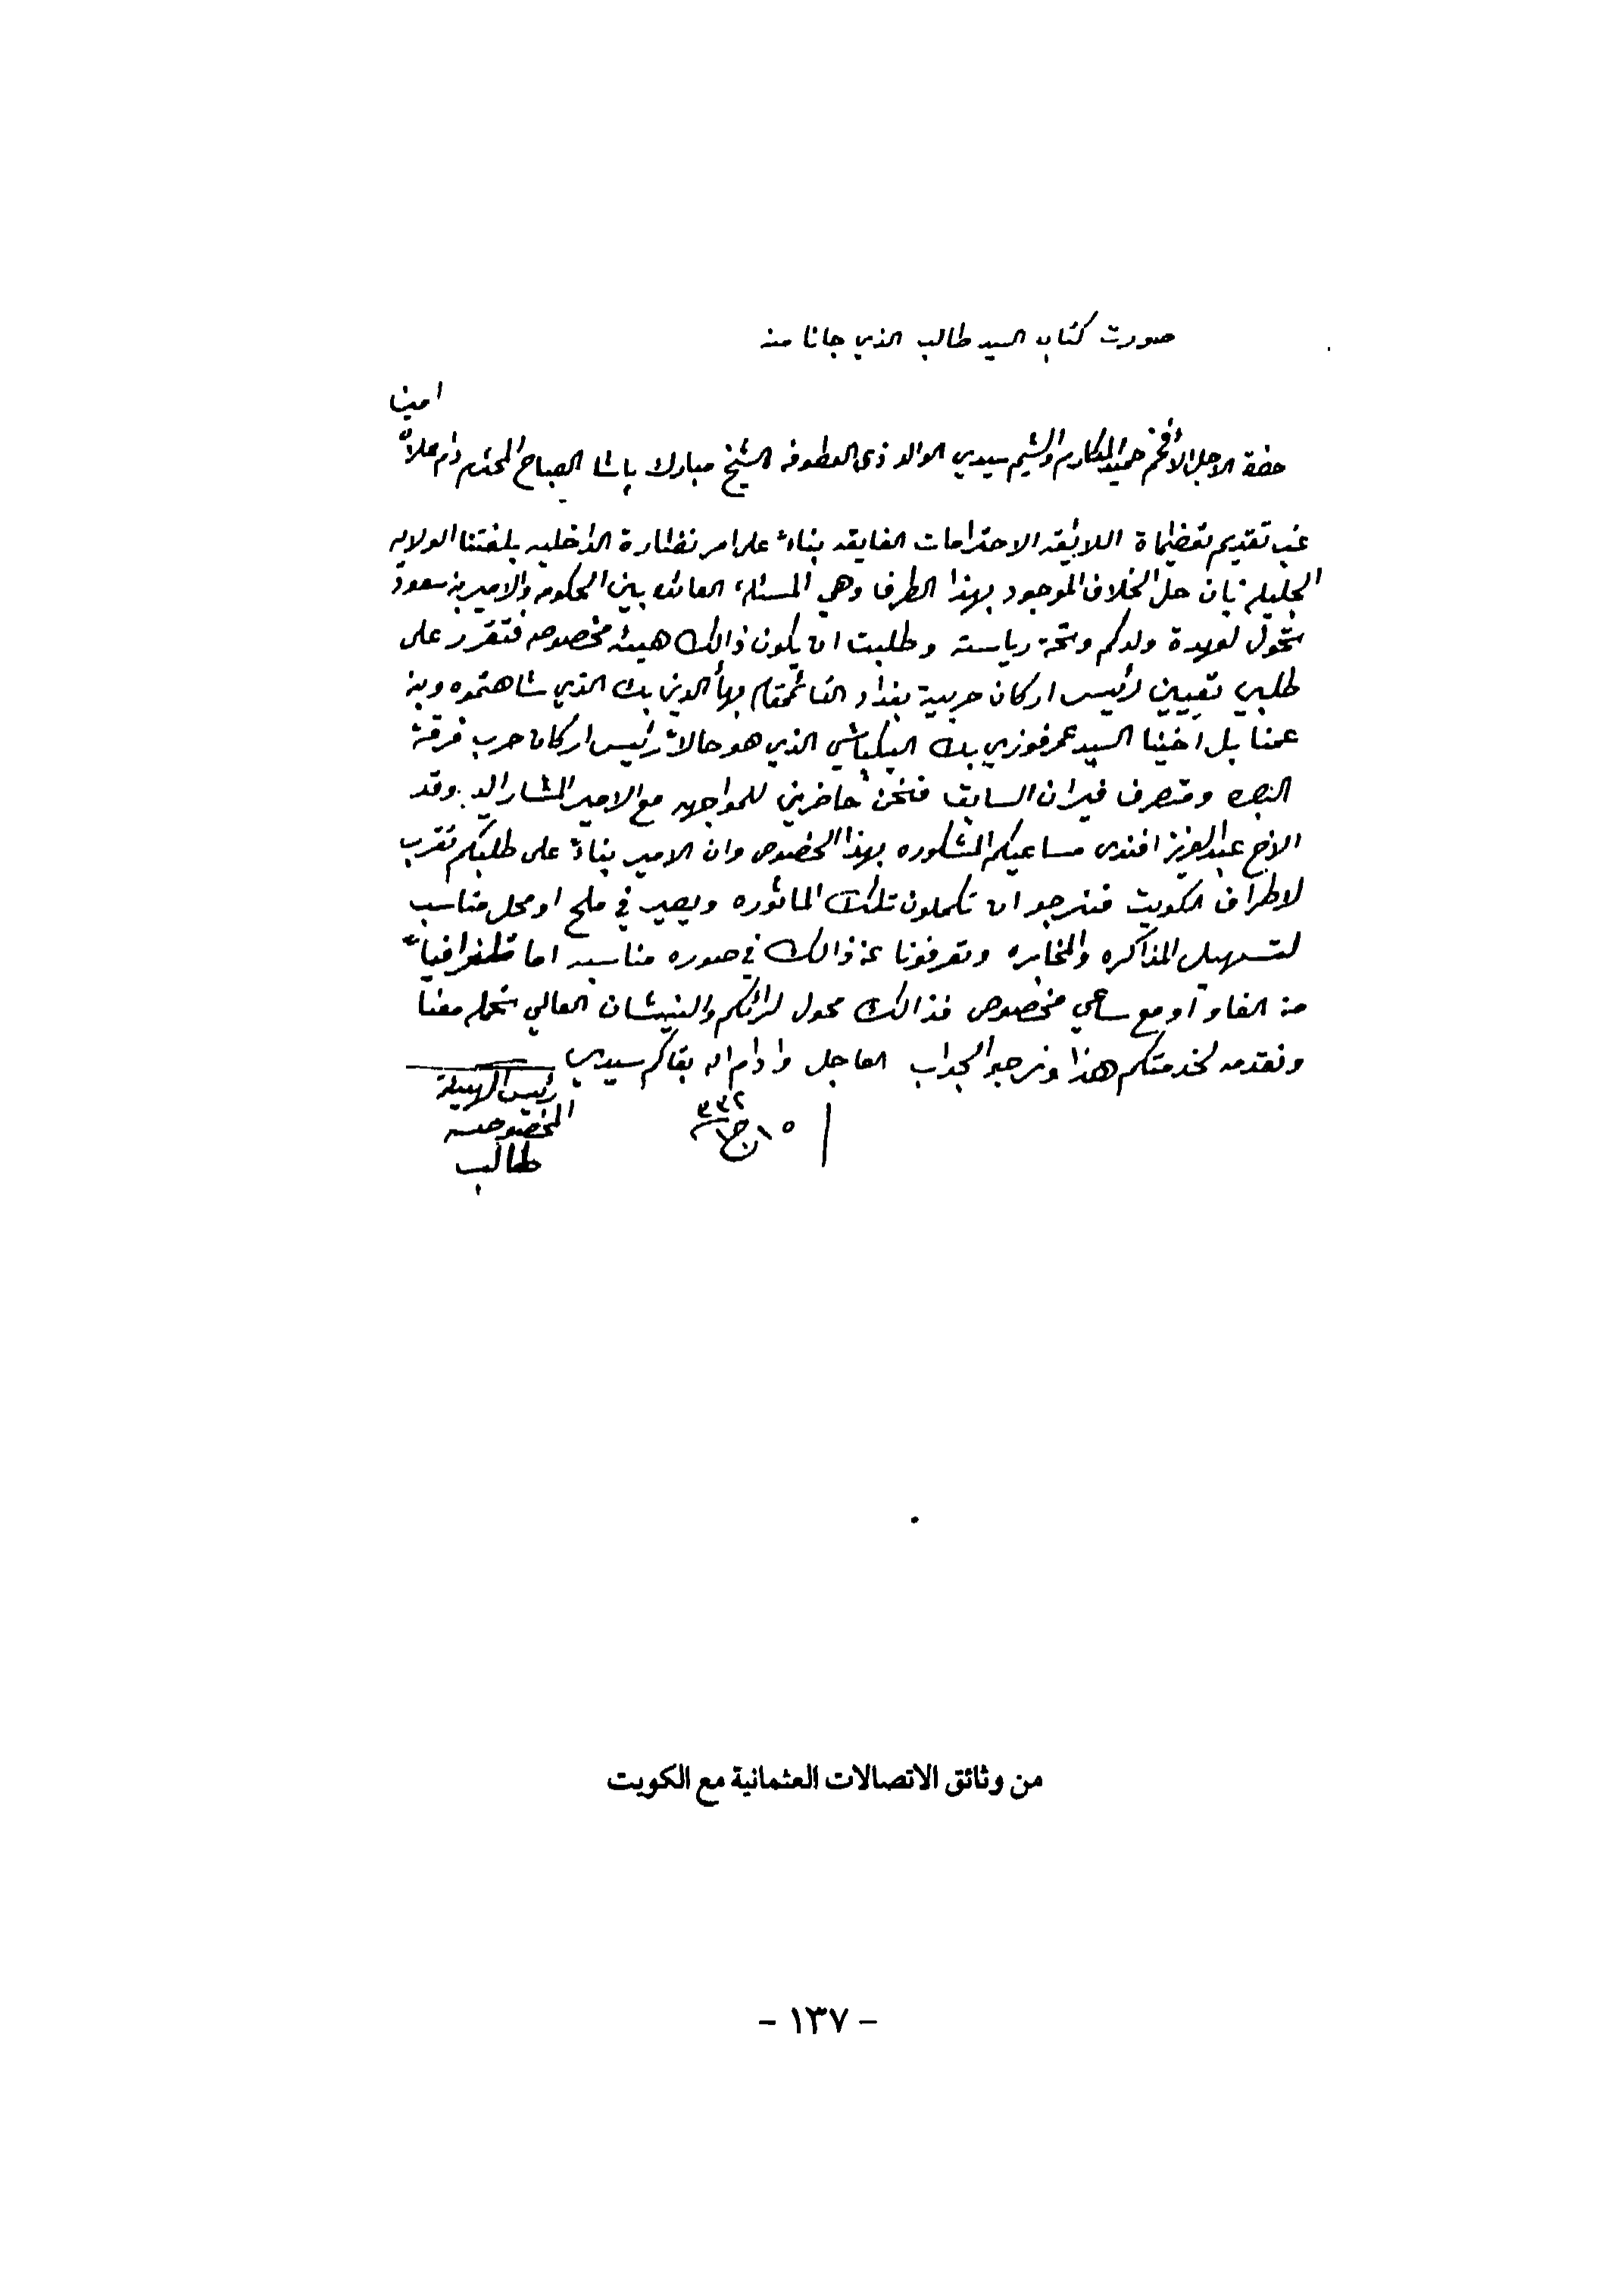 صورت كتاب السيد طالب الذي جانا منه
امين
حضرة الاجل الافخم حميد المكارم والشيم سيدي الوالد ذى العطوفه الشيخ مبارك باشا الصباح المحترم دام علاه
غب تقديم تعظيماة اللايقه الاحترامات الفايقه بناءً على امر نظارة الداخليه بلغتنا الولايه
الجليله بان حل الخلاف الموجود بهذا الطرف وهي المسئله العائده بين الحكومه والامير بن سعود
تحول لعهدة ولدكم وتحة رياسته وطلبت ان يكون ذالك هيئه مخصوصه فتقرر على
طلبي تعيين رئيس اركان حربية بغداد القائمقام بهاَ الدين بك الذي شاهتموه وبن
عمنا بل اخينا السيد عمر فوزي بك البكباشي الذي هو حالاً رئيس اركان حرب فرقة
البصره ومتصرف السابق فنحن حاضرين للمواجهه مع الامير المشار اليه. وقد
الاخ عبدالعزيز افندى مساعيكم المشكوره بهذا الخصوص وان الامير بناءً على طلبكم تقرب
لاطراف الكويت فنرجو ان تكملون تلك الماثوره ويصير في ملح او محل مناسب
لتسهيل المذاكره والمخابره وتعرفونا عن ذالك في صوره مناسبه اما تلغرافياً
من الفاو او مع ساعي مخصوص فذالك محول لرائكم والنيشان العالي نحمله معنا
ونقدمه لخدمتكم هذا ونرجو الجواب العاجل وادام اله بقاكم سيدي
١٥ ج١ ٣٣٢
رئيس الهيئة
المخصوصه
طالب
من وثائق الاتصالات العثمانية مع الكويت
- ١٣٧ -